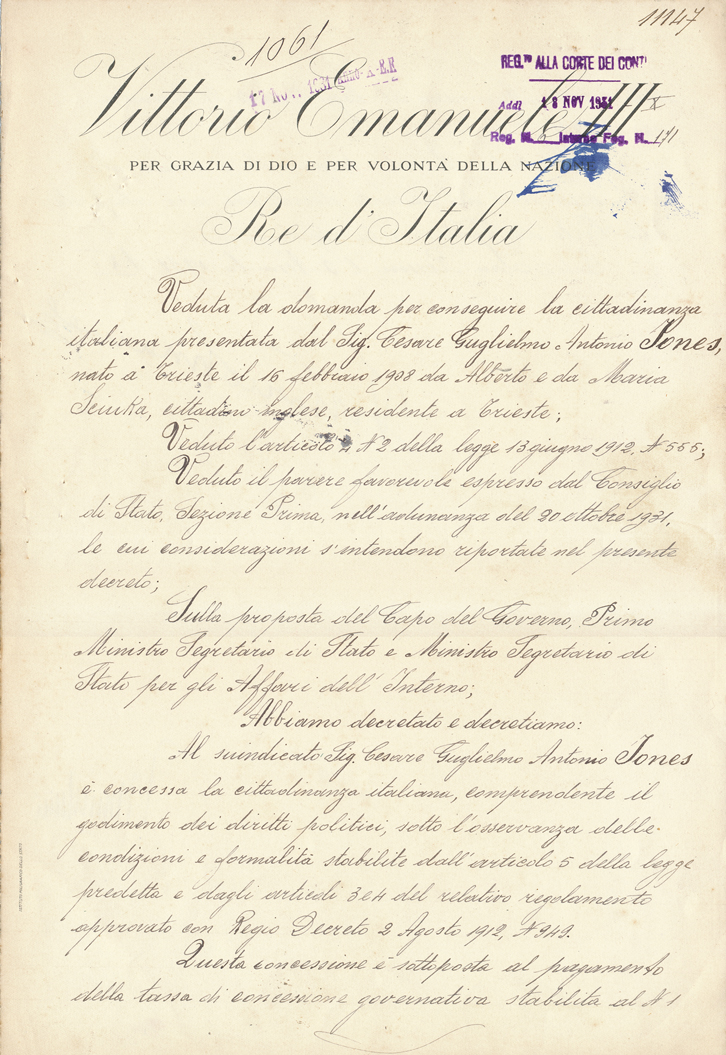 11147
1061
17 NOV. 1931 ANNO X E.F.
REG.TO ALLA CORTE DEI CONTI
Addì 18 NOV 1931 X
Reg. N. Interno Fog. N. 171
Vittorio Emanuele III
PER GRAZIA DI DIO E PER VOLONTA' DELLA NAZIONE
Re d'Italia
Veduta la domanda per conseguire la cittadinanza
italiana presentata dal Sig. Cesare Guglielmo Antonio Jones,
nato a Trieste il 16 febbraio 1908 da Alberto e da Maria
Sciuka, cittadino inglese, residente a Trieste;
Veduto l'articolo 4 N 2 della legge 13 giugno 1912, N 555;
Veduto il parere favorevole espresso dal Consiglio
di Stato, Sezione Prima, nell'adunanza del 20 ottobre 1931,
le cui considerazioni s'intendono riportate nel presente
decreto;
Sulla proposta del Capo del Governo, Primo
Ministro Segretario di Stato e Ministro Segretario di
Stato per gli Affari dell'Interno;
Abbiamo decretato e decretiamo:
Al suindicato Sig. Cesare Guglielmo Antonio Jones
è concessa la cittadinanza italiana, comprendente il
godimento dei diritti politici, sotto l'osservanza delle
condizioni e formalità stabilite dall'articolo 5 della legge
predetta e dagli articoli 3 e 4 del relativo regolamento
approvato con Regio Decreto 2 Agosto 1912, N 949.
Questa concessione è sottoposta al pagamento
della tassa di concessione governativa stabilita al N 1